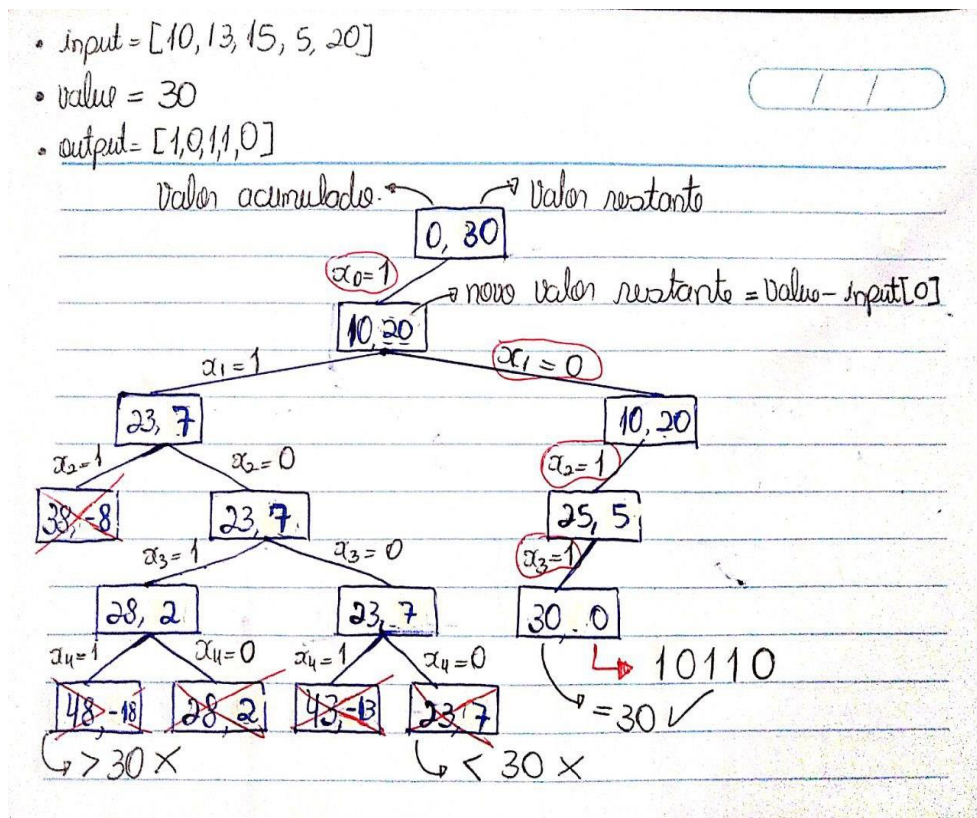 • input = [10, 13, 15, 5, 20]
• value = 30
• output = [1,0,1,1,0]
Valor acumulado. Valor restante
0, 30
x₀=1
novo valor restante = value - input[0]
10, 20
x₁=1 x₁=0
23, 7 10, 20
x₂=1 x₂=0 x₂=1
38, -8 23, 7 25, 5
x₃=1 x₃=0 x₃=1
28, 2 23, 7 30, 0
x₄=1 x₄=0 x₄=1 x₄=0 10110
48, -18 28, 2 43, -13 23, 7 =30 ✓
>30 × < 30 ×